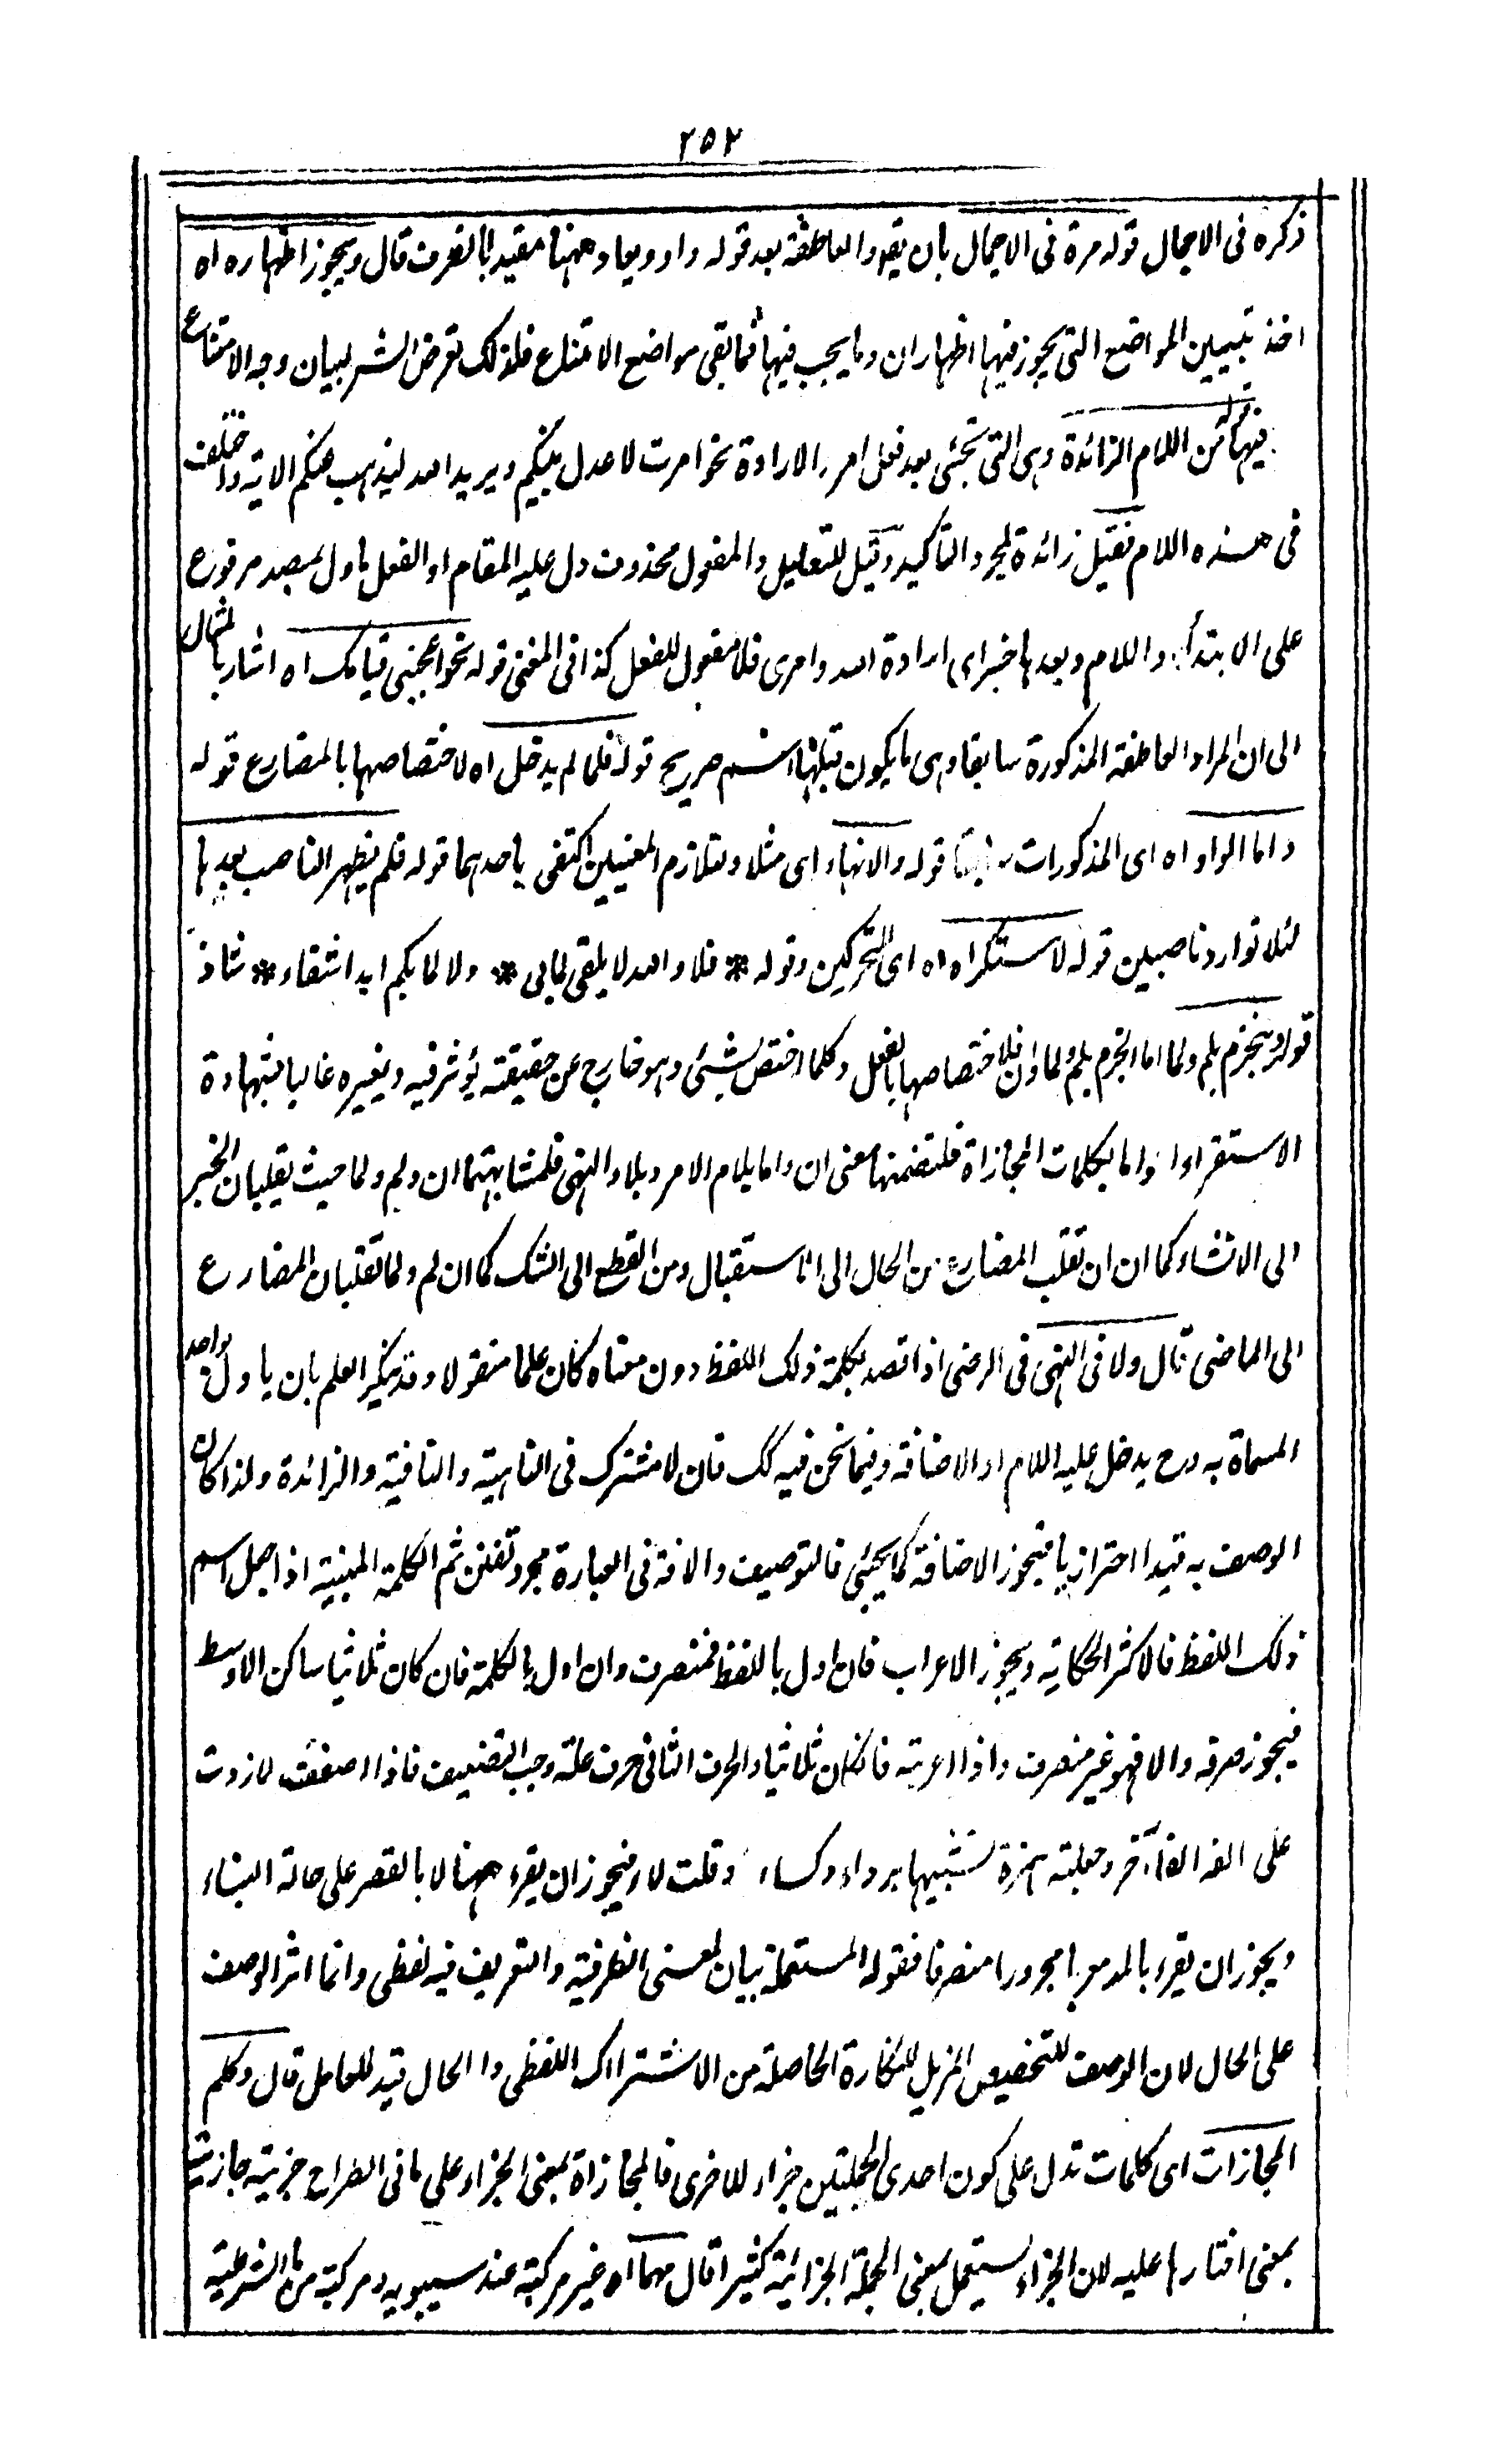 ٢٥٢
ذكره فى الاجمال قوله مرة فى الاجمال بان يقدر والعاطفة بعد قوله واو ويعاد ههنا مقيدا بالظرف قال ويجوز اظهاره اه
اخذ تبيين المواضع التى يجوز فيها اظهار ان وما يجب فيها فما بقى مواضع الامتناع فلذلك تعرض الشر لبيان وجه الامتناع
فيها قوله من اللام الزائدة وهى التى تجئى بعد فعل امر والارادة نحو امرت لاعدل بينكم ويريد الله ليذهب عنكم الاية واختلف
فى هذه اللام فقيل زائدة لمجرد التاكيد وقيل للتعليل والمفعول محذوف دل عليه المقام او الفعل ماول بمصدر مرفوع
على الابتداء واللام وبعدها خبر اى ارادة الله وامرى فلا مفعول للفعل كذا فى المغنى قوله نحو اعجبنى قيامك اه اشار بالمثال
الى ان المراد العاطفة المذكورة سابقا وهى ما يكون قبلها اسم صريح قوله فلما لم يدخل اه لاختصاصها بالمضارع قوله
واما الواو اه اى المذكورات سابقا قوله والانهاء اى مثلا ولتلازم المعنيين اكتفى باحدهما قوله فلم يظهر الناصب بعدها
لئلا توارد ناصبين قوله لاستكراه اه اى المتحركين وقوله * فلا والله لا يلقى لما بى * ولا لما بكم ابدا شفاء * شاذ
قوله وينجزم بلم ولما اما الجزم بلم ولما وان فلاختصاصها بالفعل وكلما اختص بشئى وهو خارج عن حقيقته يؤثر فيه ويغيره غالبا بشهادة
الاستقراء واما بكلمات المجازاة فلتضمنها معنى ان واما بلام الامر وبلاء النهى فلمشابهتهما ان ولم ولما حيث يقلبان الخبر
الى الانشاء كما ان ان تقلب المضارع من الحال الى الاستقبال ومن القطع الى الشك كما ان لم ولما تقلبان المضارع
الى الماضى قال ولا فى النهى فى الرضى اذا قصد بكلمة ذلك اللفظ دون معناه كان علما منقولا وقد ينكر العلم بان ياول بواحد
المسماة به وح يدخل عليه اللام او الاضافة وفيما نحن فيه كك فان لا مشترك فى الناهية والنافية والزائدة ولذا كان
الوصف به قيدا احترازيا فيجوز الاضافة كما يجئى فالتوصيف والافة فى العبارة مجرد تفنن ثم الكلمة المبنية اذا جعل اسم
ذلك اللفظ فالاكثر الحكاية ويجوز الاعراب فان اول باللفظ فمنصرف وان اول بالكلمة فان كان ثلاثيا ساكن الاوسط
فيجوز صرفه والا فهو غير منصرف واذا اعربته فانكان ثلاثيا والحرف الثانى حرف علة وجب التضعيف فاذا اضعفت لا زدت
على الفه الفا آخر وجعلته همزة تشبيها برداء وكساء وقلت لاء فيجوز ان يقرء ههنا لا بالقصر على حالة البناء
ويجوز ان يقرء بالمد معربا مجرورا منصرفا فقوله المستعملة بيان لمعنى الظرفية والتعريف فيه لفظى وانما اثر الوصف
على الحال لان الوصف للتخصيص المزيل للنكارة الحاصلة من الاشتراك اللفظى واالحال قيد للعامل قال وكلم
المجازات اى كلمات تدل على كون احدى الجملتين جزاء للاخرى فالمجازاة بمعنى الجزاء على ما فى الصراح جزيته جازيت
بمعنى اختارها عليه لان الجزاء يستعمل بمعنى الجملة الجزائية كثيرا قال مهما اه غير مركبة عند سيبويه ومركبة من ما الشرطية